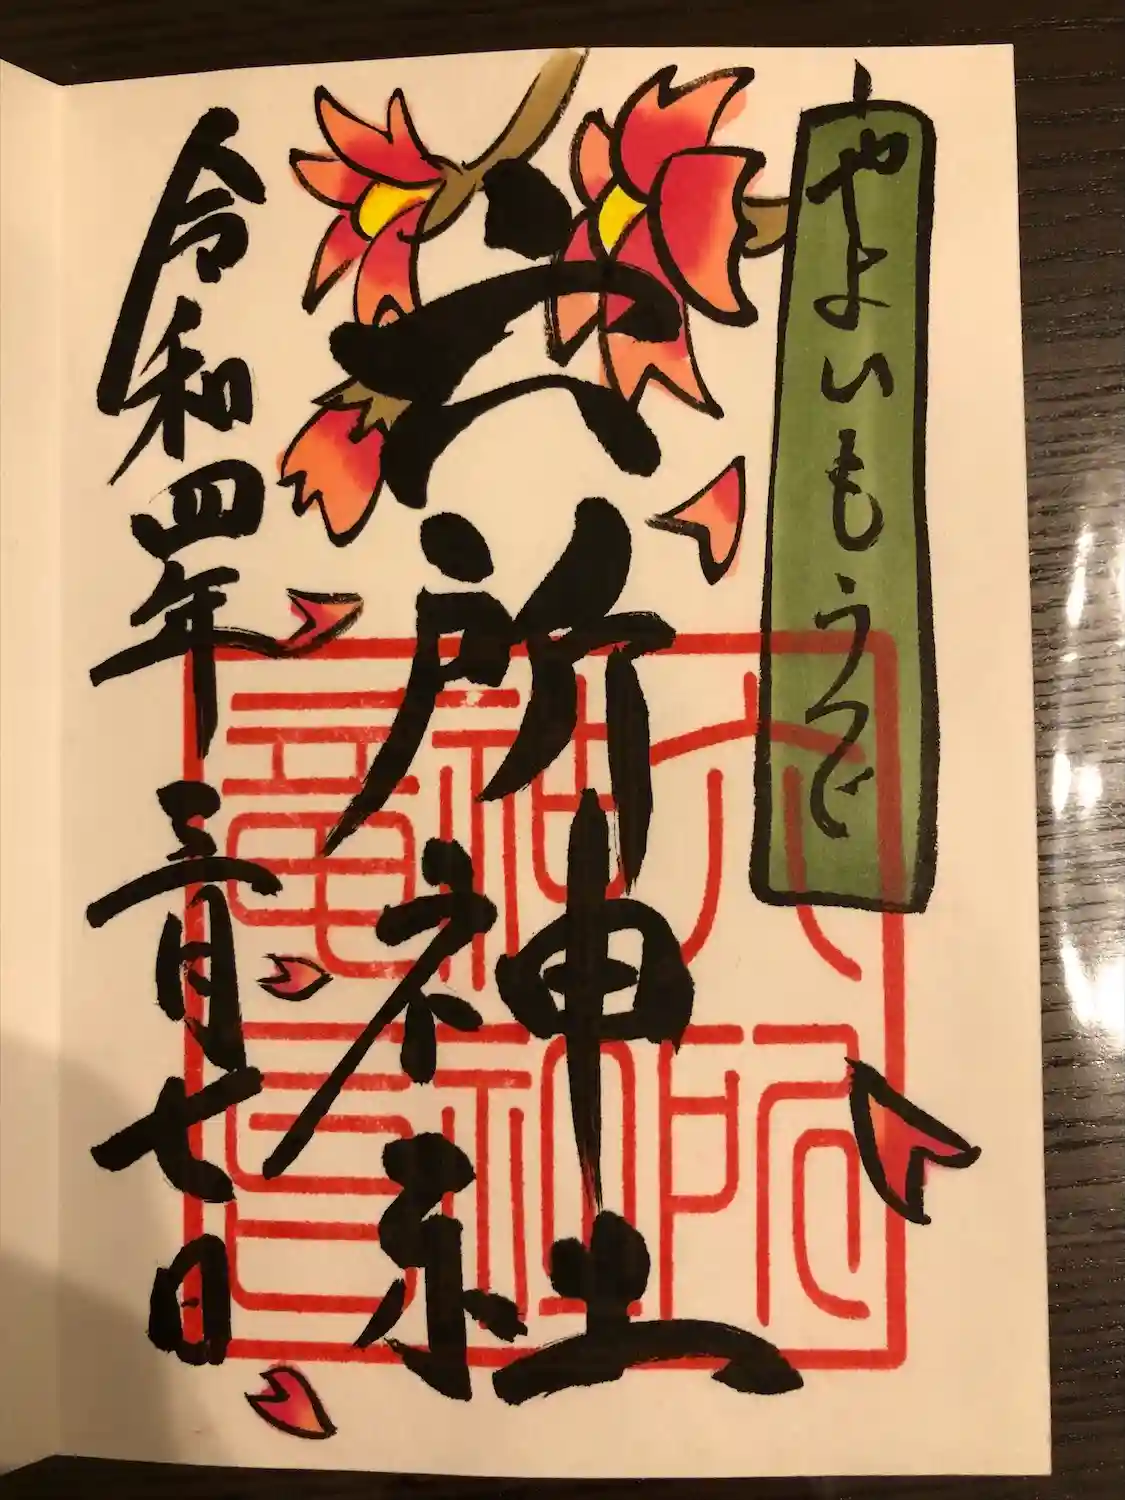 やよいもうで
六所神社
令和四年三月七日
六所
神社